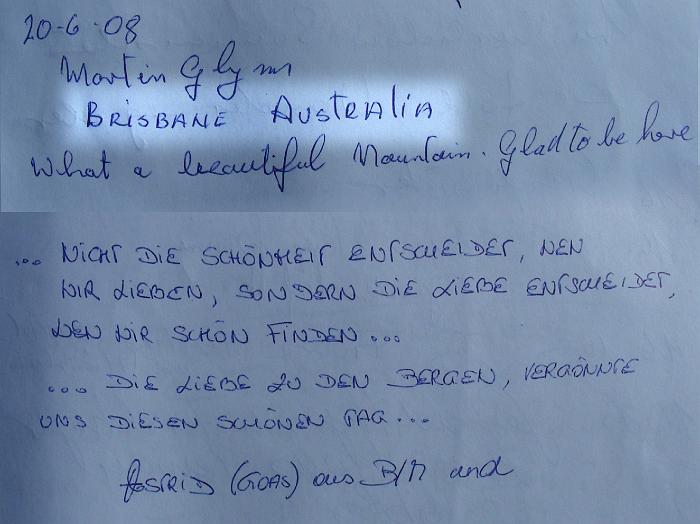 20-6-08
Martin Glynn
BRISBANE AUSTRALIA
What a beautiful Mountain. Glad to be here
... NICHT DIE SCHÖNHEIT ENTSCHEIDET, WEN
WIR LIEBEN, SONDERN DIE LIEBE ENTSCHEIDET,
WEN WIR SCHÖN FINDEN...
... DIE LIEBE ZU DEN BERGEN, VERGÖNNTE
UNS DIESEN SCHÖNEN TAG...
ASTRID (GOAS) aus and